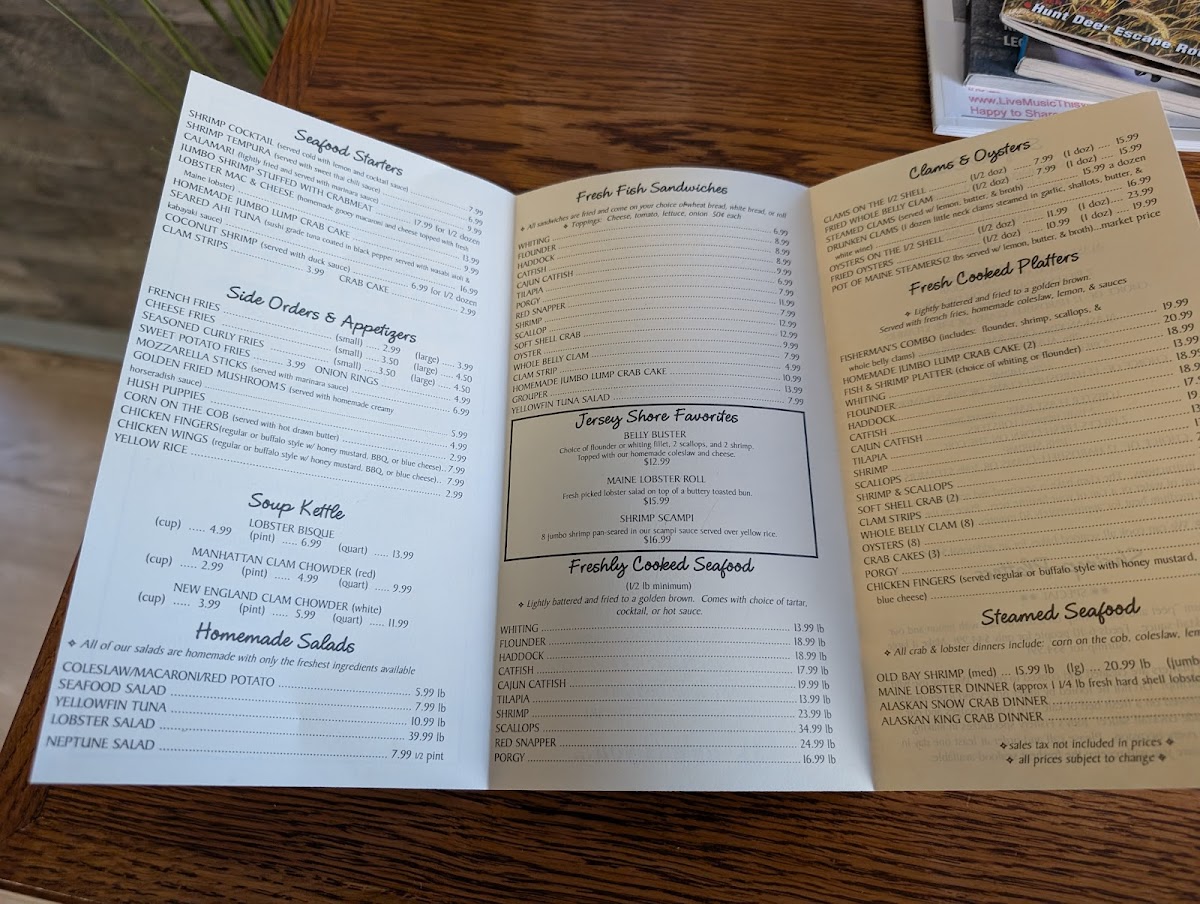 Hunt Deer Escape Ro
www.LiveMusicThis
Happy to Share
Seafood Starters
SHRIMP COCKTAIL (served cold with lemon and cocktail sauce) 7.99
SHRIMP TEMPURA (served with sweet thai chili sauce) 6.99
CALAMARI (lightly fried and served with marinara sauce) 9.99
JUMBO SHRIMP STUFFED WITH CRABMEAT 17.99 for 1/2 dozen
LOBSTER MAC & CHEESE (homemade gooey macaroni and cheese topped with fresh
Maine lobster) 13.99
HOMEMADE JUMBO LUMP CRAB CAKE 9.99
SEARED AHI TUNA (sushi grade tuna coated in black pepper served with wasabi aioli &
kabayaki sauce) 16.99
COCONUT SHRIMP (served with duck sauce) 6.99 for 1/2 dozen
CLAM STRIPS 3.99 CRAB CAKE 2.99
Side Orders & Appetizers
FRENCH FRIES (small) ..... 2.99 (large) ... 3.99
CHEESE FRIES (small) ..... 3.50 (large) ... 4.50
SEASONED CURLY FRIES (small) ..... 3.50 (large) ... 4.50
SWEET POTATO FRIES ..... 3.99 ONION RINGS 4.99
MOZZARELLA STICKS (served with marinara sauce) 6.99
GOLDEN FRIED MUSHROOMS (served with homemade creamy
horseradish sauce) 5.99
HUSH PUPPIES 4.99
CORN ON THE COB (served with hot drawn butter) 2.99
CHICKEN FINGERS(regular or buffalo style w/ honey mustard, BBQ, or blue cheese).. 7.99
CHICKEN WINGS (regular or buffalo style w/ honey mustard, BBQ, or blue cheese).. 7.99
YELLOW RICE 2.99
Soup Kettle
LOBSTER BISQUE
(cup) ..... 4.99 (pint) ..... 6.99 (quart) ..... 13.99
MANHATTAN CLAM CHOWDER (red)
(cup) ..... 2.99 (pint) ..... 4.99 (quart) ..... 9.99
NEW ENGLAND CLAM CHOWDER (white)
(cup) ..... 3.99 (pint) ..... 5.99 (quart) ..... 11.99
Homemade Salads
❖ All of our salads are homemade with only the freshest ingredients available
COLESLAW/MACARONI/RED POTATO 5.99 lb
SEAFOOD SALAD 7.99 lb
YELLOWFIN TUNA 10.99 lb
LOBSTER SALAD 39.99 lb
NEPTUNE SALAD 7.99 1/2 pint
Fresh Fish Sandwiches
❖ All sandwiches are fried and come on your choice of wheat bread, white bread, or roll
❖ Toppings: Cheese, tomato, lettuce, onion .50¢ each
WHITING 6.99
FLOUNDER 8.99
HADDOCK 8.99
CATFISH 8.99
CAJUN CATFISH 9.99
TILAPIA 6.99
PORGY 7.99
RED SNAPPER 11.99
SHRIMP 7.99
SCALLOP 12.99
SOFT SHELL CRAB 12.99
OYSTER 9.99
WHOLE BELLY CLAM 7.99
CLAM STRIP 4.99
HOMEMADE JUMBO LUMP CRAB CAKE 10.99
GROUPER 13.99
YELLOWFIN TUNA SALAD 7.99
Jersey Shore Favorites
BELLY BUSTER
Choice of flounder or whiting fillet, 2 scallops, and 2 shrimp.
Topped with our homemade coleslaw and cheese.
$12.99
MAINE LOBSTER ROLL
Fresh picked lobster salad on top of a buttery toasted bun.
$15.99
SHRIMP SCAMPI
8 jumbo shrimp pan-seared in our scampi sauce served over yellow rice.
$16.99
Freshly Cooked Seafood
(1/2 lb minimum)
❖ Lightly battered and fried to a golden brown. Comes with choice of tartar,
cocktail, or hot sauce.
WHITING 13.99 lb
FLOUNDER 18.99 lb
HADDOCK 18.99 lb
CATFISH 17.99 lb
CAJUN CATFISH 19.99 lb
TILAPIA 13.99 lb
SHRIMP 23.99 lb
SCALLOPS 34.99 lb
RED SNAPPER 24.99 lb
PORGY 16.99 lb
Clams & Oysters
CLAMS ON THE 1/2 SHELL (1/2 doz) ... 7.99 (1 doz) .... 15.99
FRIED WHOLE BELLY CLAM (1/2 doz) ... 7.99 (1 doz) .... 15.99
STEAMED CLAMS (served w/ lemon, butter, & broth) 15.99 a dozen
DRUNKEN CLAMS (1 dozen little neck clams steamed in garlic, shallots, butter, &
white wine) 16.99
OYSTERS ON THE 1/2 SHELL (1/2 doz) ... 11.99 (1 doz) .... 23.99
FRIED OYSTERS (1/2 doz) ... 10.99 (1 doz) ... 19.99
POT OF MAINE STEAMERS(2 lbs served w/ lemon, butter, & broth)...market price
Fresh Cooked Platters
❖ Lightly battered and fried to a golden brown.
Served with french fries, homemade coleslaw, lemon, & sauces
FISHERMAN'S COMBO (includes: flounder, shrimp, scallops, &
whole belly clams) 19.99
HOMEMADE JUMBO LUMP CRAB CAKE (2) 20.99
FISH & SHRIMP PLATTER (choice of whiting or flounder) 18.99
WHITING 13.99
FLOUNDER
HADDOCK
CATFISH
CAJUN CATFISH
TILAPIA
SHRIMP
SCALLOPS
SHRIMP & SCALLOPS
SOFT SHELL CRAB (2)
CLAM STRIPS
WHOLE BELLY CLAM (8)
OYSTERS (8)
CRAB CAKES (3)
PORGY
CHICKEN FINGERS (served regular or buffalo style with honey mustard,
blue cheese)
Steamed Seafood
❖ All crab & lobster dinners include: corn on the cob, coleslaw,
OLD BAY SHRIMP (med) ... 15.99 lb (lg) ... 20.99 lb (jumb
MAINE LOBSTER DINNER (approx 1 1/4 lb fresh hard shell lobste
ALASKAN SNOW CRAB DINNER
ALASKAN KING CRAB DINNER
❖ sales tax not included in prices ❖
❖ all prices subject to change ❖